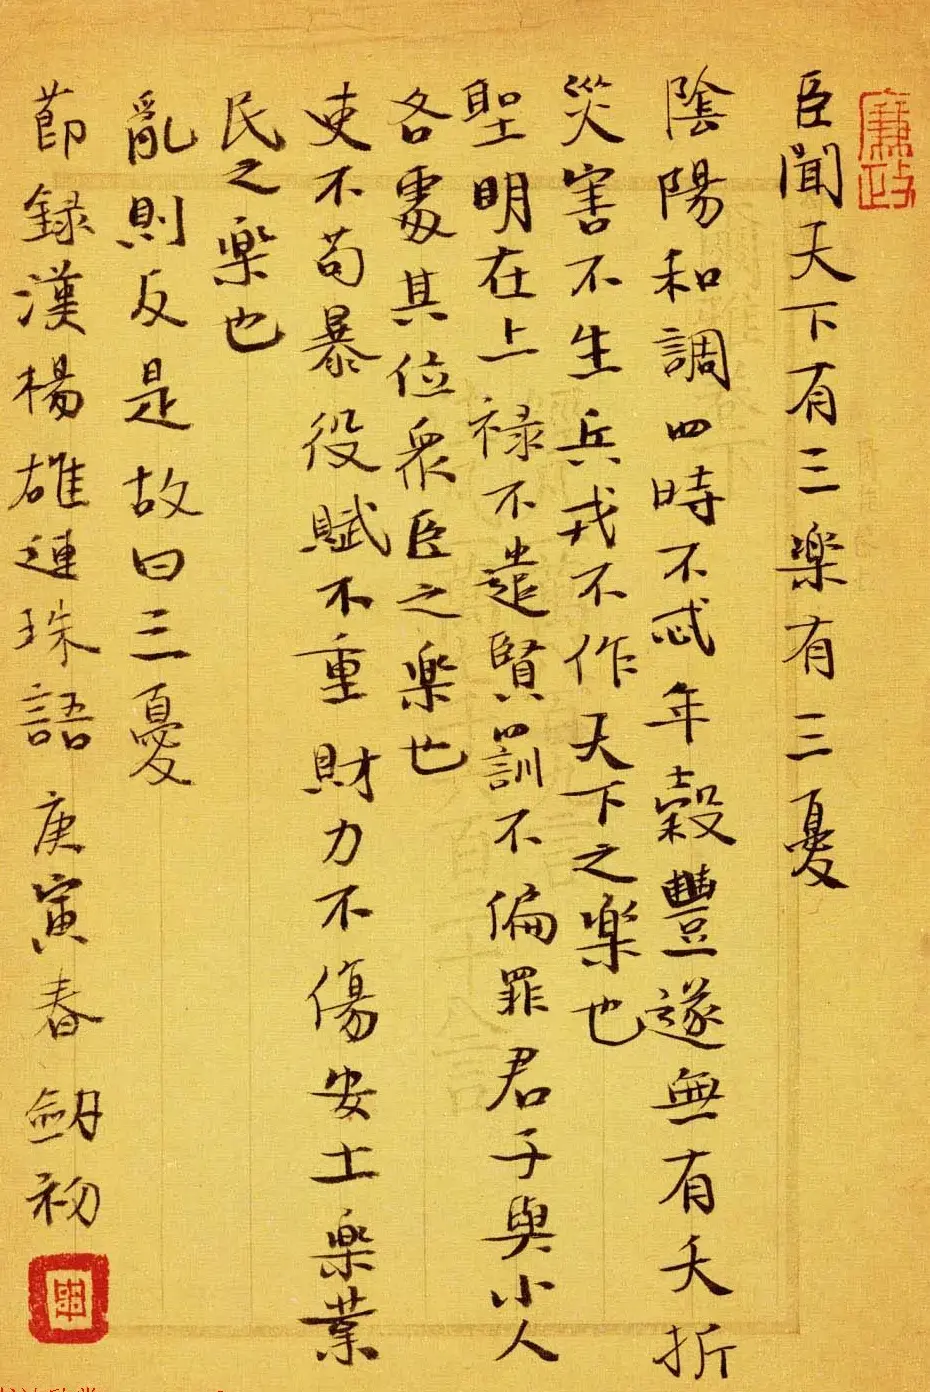 廉政
臣聞天下有三楽有三憂
陰陽和調四時不忒年穀豐遂無有夭折
災害不生兵戎不作天下之楽也
聖明在上禄不遺賢罰不偏罪君子與小人
各處其位衆臣之楽也
吏不苟暴役賦不重財力不傷安土楽業
民之楽也
亂則反是故曰三憂
莭録漢楊雄連珠語 庚寅春 劒初